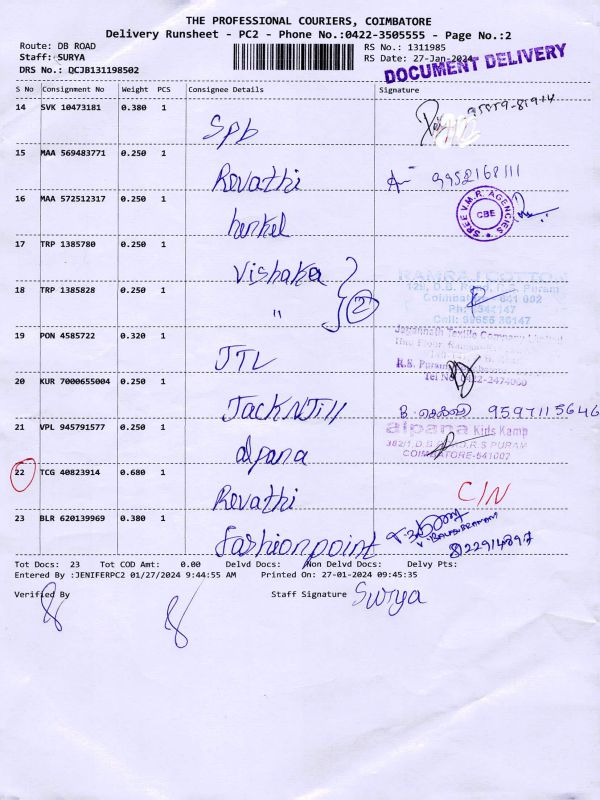 THE PROFESSIONAL COURIERS, COIMBATORE
Delivery Runsheet - PC2 - Phone No.:0422-3505555 - Page No.:2
Route: DB ROAD
RS No.: 1311985
Staff: SURYA
RS Date: 27-Jan-2024
DRS No.: QCJB131198502
DOCUMENT DELIVERY
S No Consignment No Weight PCS Consignee Details Signature
14 SVK 10473181 0.380 1 Spb
15 MAA 569483771 0.250 1 Revathi 9952168111
16 MAA 572512317 0.250 1 henkel
SREE V.M.R. AGENCIES CBE
17 TRP 1385780 0.250 1 Vishaka
18 TRP 1385828 0.250 1 " 2
RAMRAJ COTTON
Coimbatore 641 002
19 PON 4585722 0.320 1 JTL
Jagannath Textile Company Limited
20 KUR 7000655004 0.250 1 JackNJill 9597115646
21 VPL 945791577 0.250 1 alpana
alpana Kids Kamp
R.S PURAM
COIMBATORE-641002
22 TCG 40823914 0.680 1 Revathi C/N
23 BLR 620139969 0.380 1 fashionpoint
V. BALASUBRAMANI
Tot Docs: 23 Tot COD Amt: 0.00 Delvd Docs: Non Delvd Docs: Delvy Pts:
Entered By :JENIFERPC2 01/27/2024 9:44:55 AM Printed On: 27-01-2024 09:45:35
Verified By Staff Signature Surya